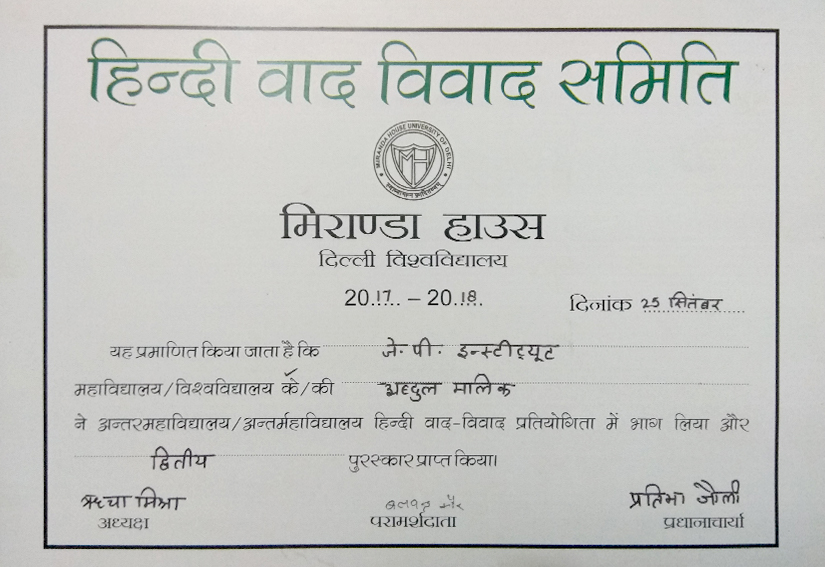 हिन्दी वाद विवाद समिति
MIRANDA HOUSE UNIVERSITY OF DELHI
MH
मिराण्डा हाउस
दिल्ली विश्वविद्यालय
2017 – 2018.
दिनांक 25 सितंबर
यह प्रमाणित किया जाता है कि जे. पी. इन्स्टीट्यूट
महाविद्यालय/विश्वविद्यालय के/की अब्दुल मालिक
ने अन्तरमहाविद्यालय/अन्तर्महाविद्यालय हिन्दी वाद-विवाद प्रतियोगिता में भाग लिया और
द्वितीय पुरस्कार प्राप्त किया।
ऋचा मिश्रा प्रतिभा जौली
अध्यक्ष परामर्शदाता प्रधानाचार्या